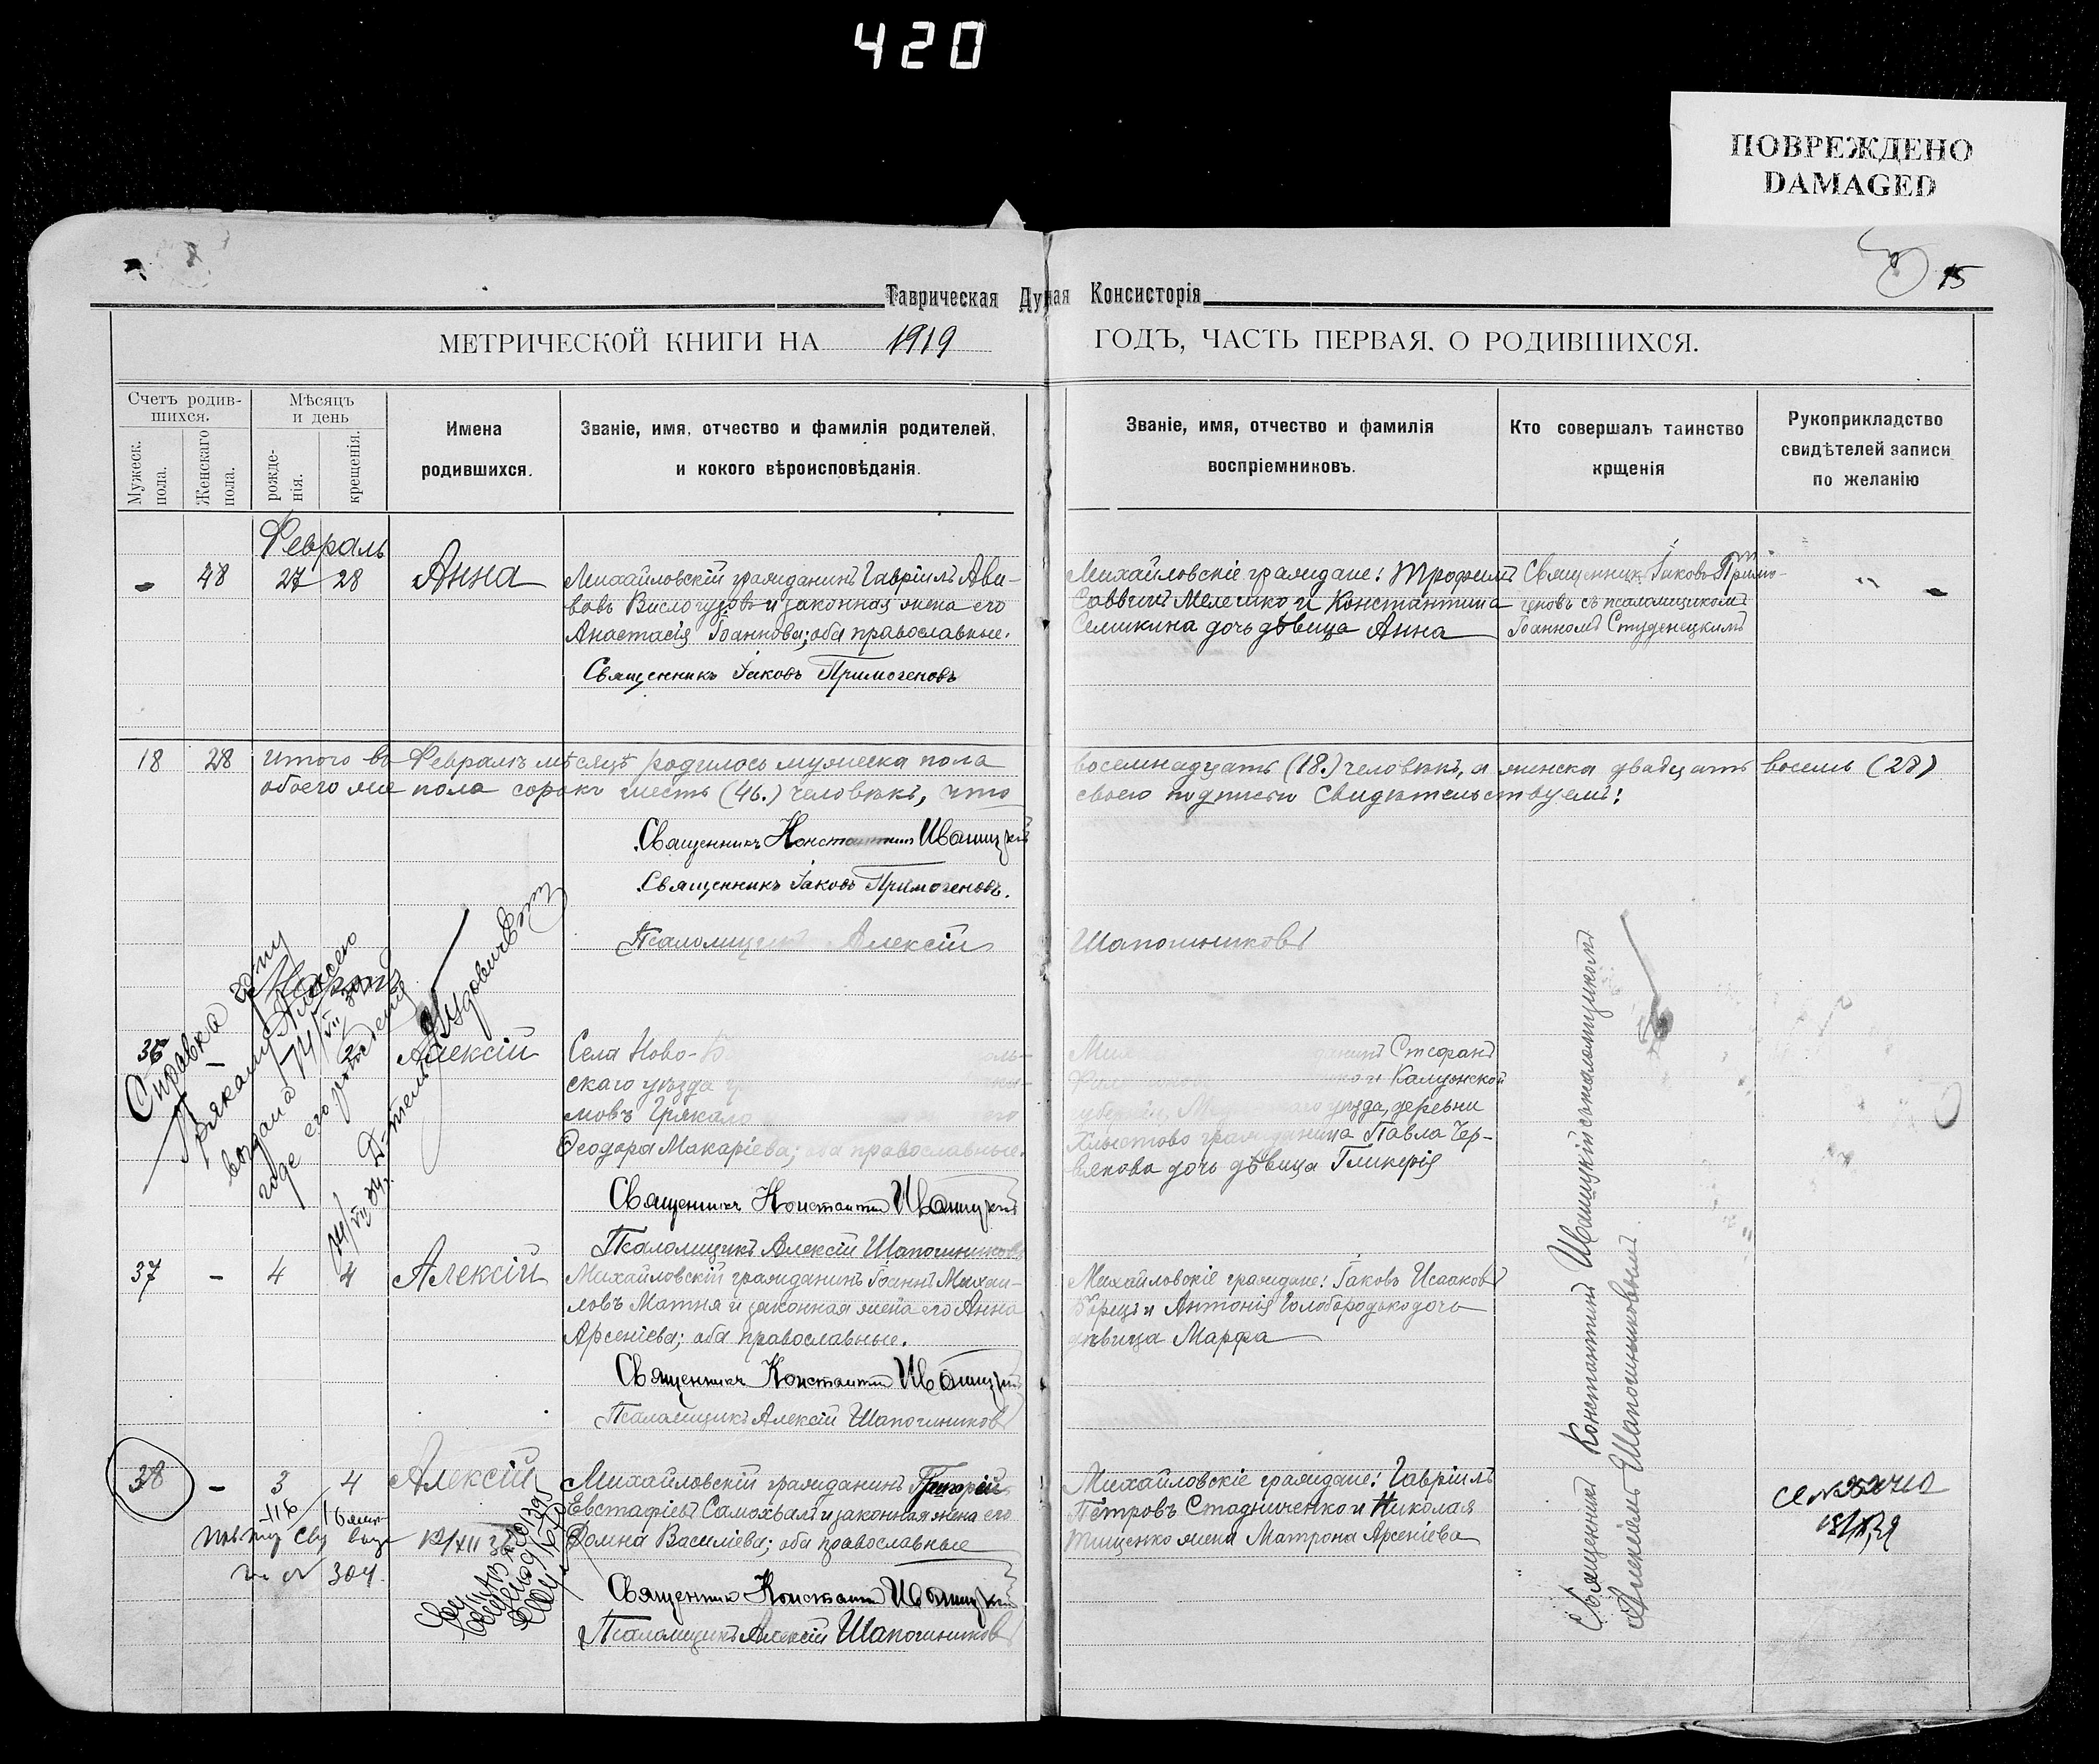 420
ПОВРЕЖДЕНО
DAMAGED
15
Таврическая Ду ная Консисторія
МЕТРИЧЕСКОЙ КНИГИ НА 1919 ГОДЪ, ЧАСТЬ ПЕРВАЯ. О РОДИВШИХСЯ.
Счетъ родив-
шихся.
Мужеск.
пола.
Женскаго
пола.
Мѣсяцъ
и день
рожде-
нія.
крещенія.
Имена
родившихся.
Званіе, имя, отчество и фамилія родителей,
и кокого вѣроисповѣданія.
Званіе, имя, отчество и фамилія
воспріемниковъ.
Кто совершалъ таинство
крщенія
Рукоприкладство
свидѣтелей записи
по желанію
Февраль
- 48 27 28 Анна
Михайловскій гражданинъ Гавріилъ Ави-
вовъ Вислогузовъ и законная жена его
Анастасія Іоаннова; оба православные.
Священникъ Іаковъ Примогеновъ
Михайловскіе граждане: Трофимъ
Саввинъ Мелешко и Константина
Семикина дочь дѣвица Анна
Священникъ Іаковъ Примо-
геновъ съ псаломщикомъ
Іоанномъ Студенецкимъ
-
18 28 Итого въ Февралѣ мѣсяцѣ родилось мужеска пола восемнадцать (18.) человѣкъ, а женска двадцать восемь (28)
обоего же пола сорокъ шесть (46.) человѣкъ, что своею подписью свидѣтельствуемъ:
Священникъ Константинъ Иваницкій
Священникъ Іаковъ Примогеновъ.
Псаломщикъ Алексій Шапошниковъ
Мартъ
Справка
Грякалу Алексею
выдана 14/VII 39
годе его рождения
36 - 2 Алексій
Села Ново-
скаго уѣзда
мовъ Грякало его
Ѳеодора Макаріева; оба православные.
Священникъ Константинъ Иваницкій
Псаломщикъ Алексій Шапошниковъ
Стефанъ
и Калужской
губерніи, уѣзда, деревни
Хлыстово гражданина Павла Чер-
вякова дочь дѣвица Гликерія
37 - 4 4 Алексій
Михайловскій гражданинъ Іоаннъ Михаи-
ловъ Матня и законная жена его Анна
Арсеніева; оба православные.
Священникъ Константинъ Иваницкій
Псаломщикъ Алексій Шапошниковъ
Михайловскіе граждане: Іаковъ Исааковъ
Борецъ и Антонія Голобородько дочь
дѣвица Марфа
38 - 3 4 Алексій
Михайловскій гражданинъ Григорій
Евстафіевъ Самохвалъ и законная жена его
Домна Василіева; оба православные
Священникъ Константинъ Иваницкій
Псаломщикъ Алексій Шапошниковъ
Михайловскіе граждане: Гавріилъ
Петровъ Стадниченко и Николая
Тищенко жена Матрона Арсеніева
Священникъ Константинъ Иваницкій съ псаломщикомъ
Алексіемъ Шапошниковымъ.
304